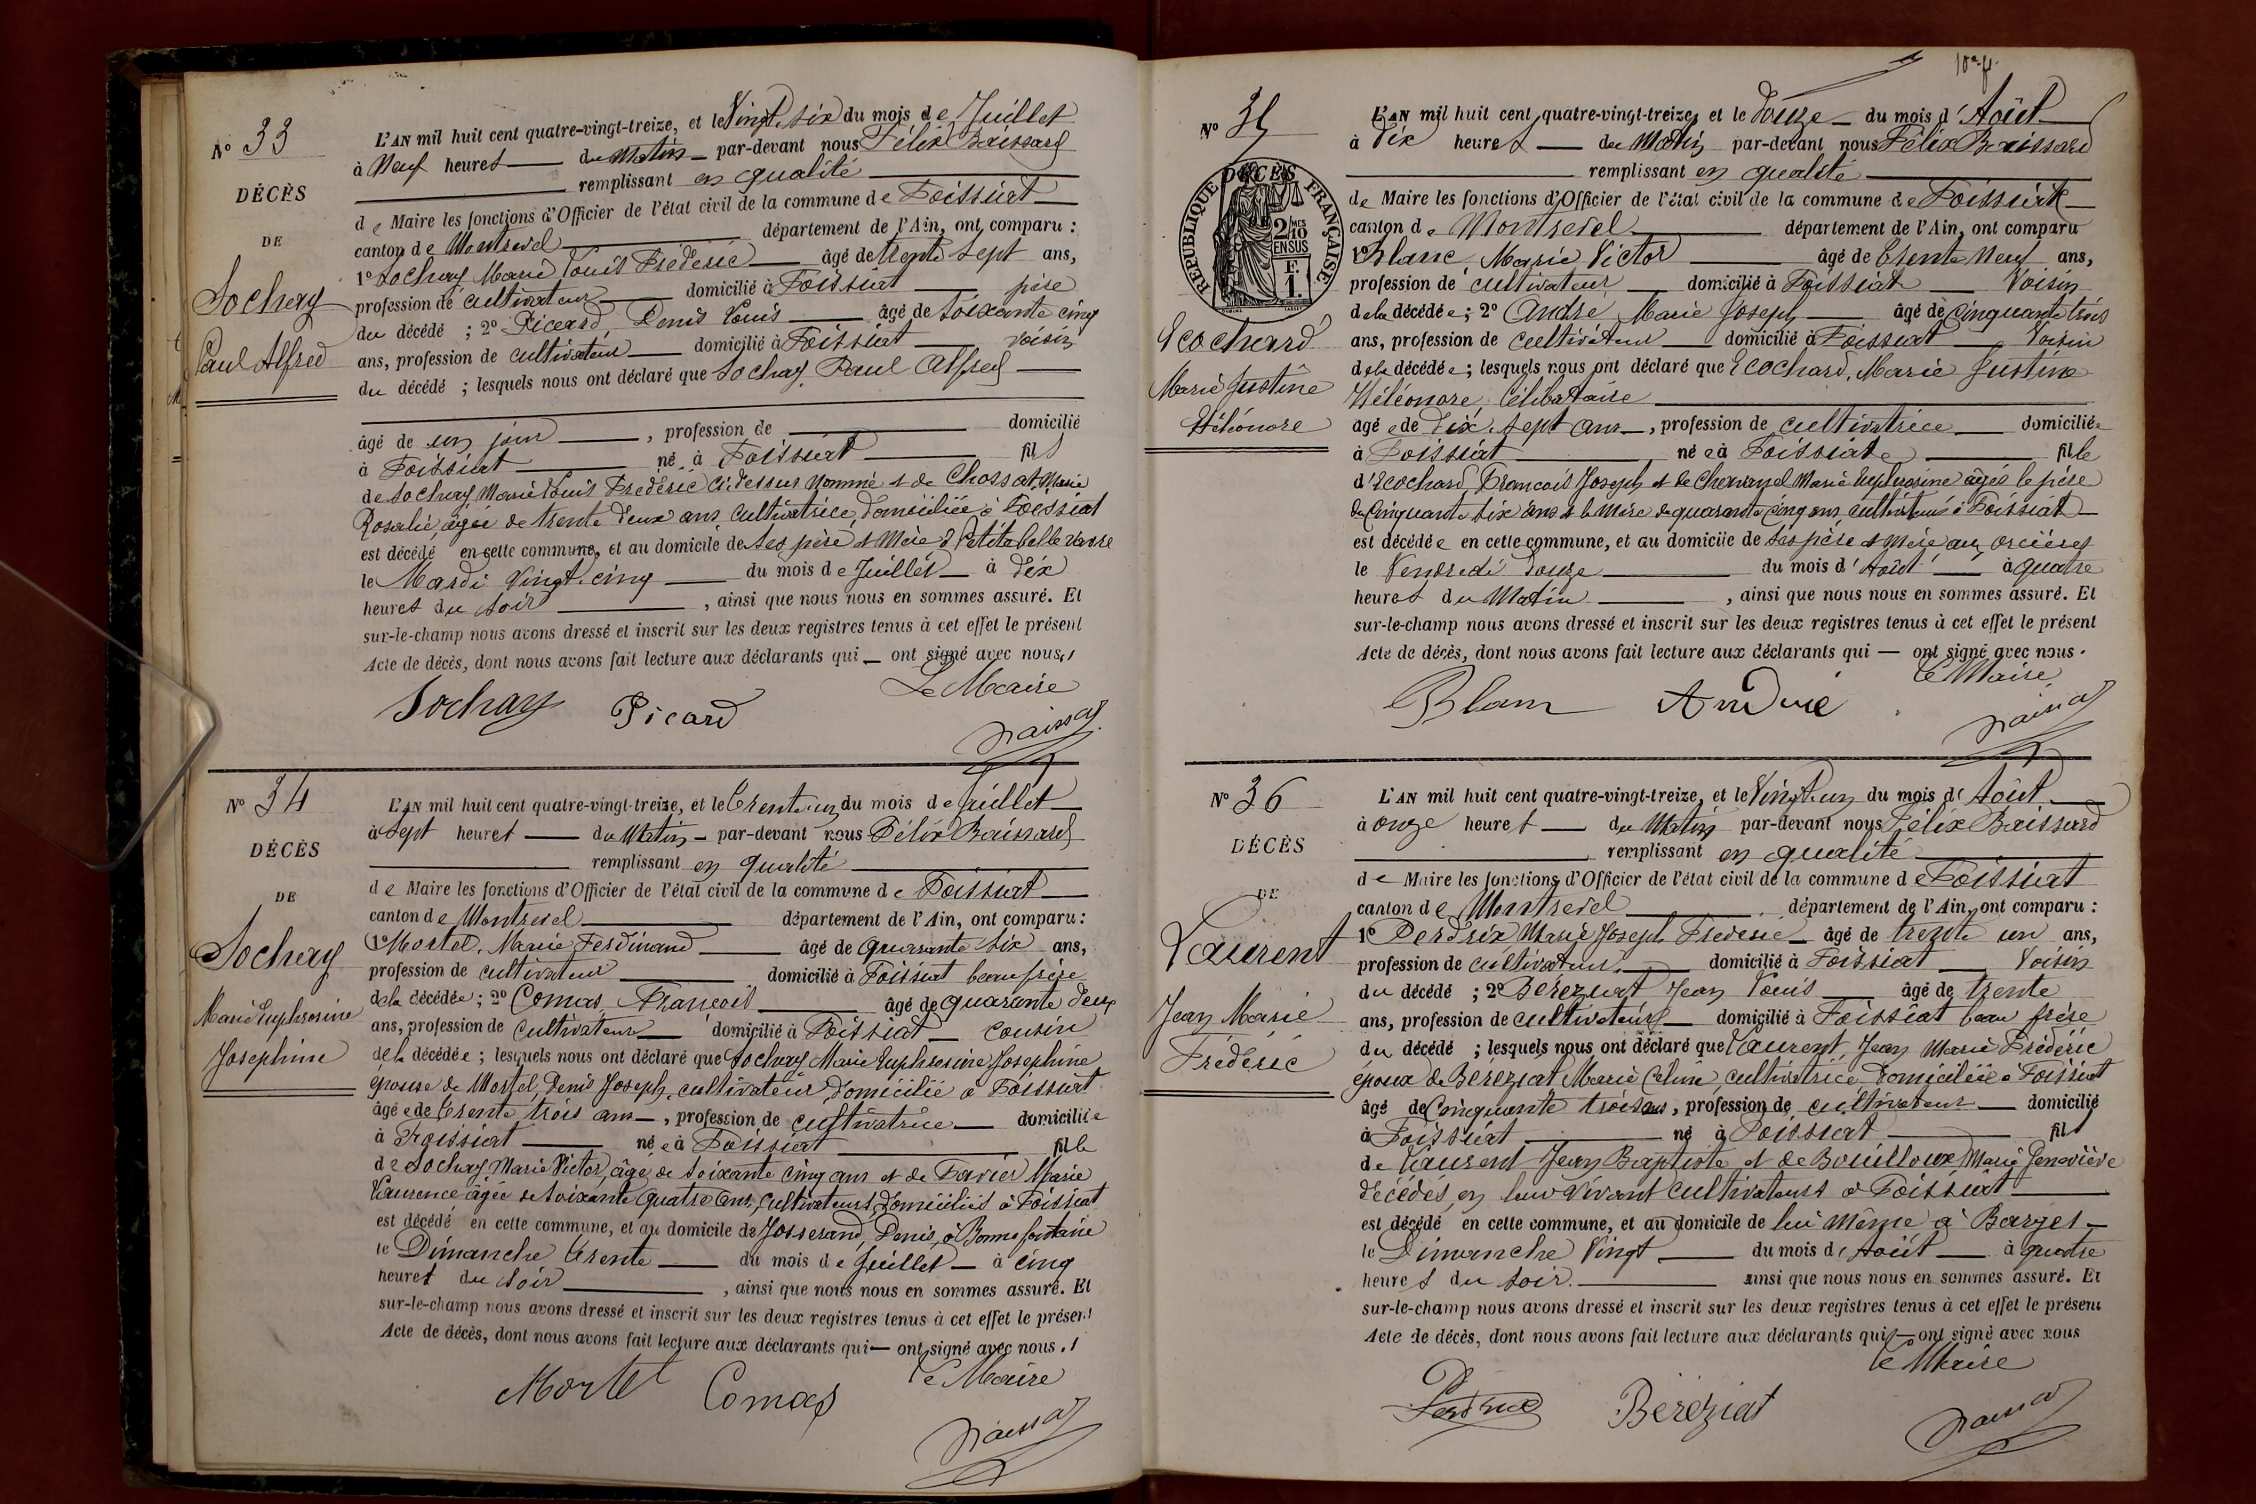 N° 33
DÉCÈS
DE
Sochay
Paul Alfred
L'AN mil huit cent quatre-vingt-treize, et le Vingt six du mois de Juillet
à Neuf heures du Matin par-devant nous Félix Baissard
remplissant en qualité
de Maire les fonctions d'Officier de l'état civil de la commune de Foissiat
canton de Montrevel département de l'Ain, ont comparu :
1° Sochay Marie Louis Frédéric âgé de trente sept ans,
profession de cultivateur domicilié à Foissiat père
du décédé ; 2° Picard, Denis Louis âgé de soixante cinq
ans, profession de cultivateur domicilié à Foissiat voisin
du décédé ; lesquels nous ont déclaré que Sochay, Paul Alfred
âgé de un jour , profession de domicilié
à Foissiat né à Foissiat fils
de Sochay Marie Louis Frédéric ci-dessus nommé et de Chossat Marie
Rosalie, âgée de trente deux ans, cultivatrice, domiciliée à Foissiat
est décédé en cette commune, et au domicile de ses père et Mère à Petite belle vavre
le Mardi Vingt cinq du mois de Juillet à dix
heures du soir , ainsi que nous nous en sommes assuré. Et
sur-le-champ nous avons dressé et inscrit sur les deux registres tenus à cet effet le présent
Acte de décès, dont nous avons fait lecture aux déclarants qui ont signé avec nous.
Le Maire
Sochay Picard
Baissard
N° 34
DÉCÈS
DE
Sochay
Marie Euphrosine
Josephine
L'AN mil huit cent quatre-vingt-treize, et le trente un du mois de Juillet
à Sept heures du Matin par-devant nous Félix Baissard
remplissant en qualité
de Maire les fonctions d'Officier de l'état civil de la commune de Foissiat
canton de Montrevel département de l'Ain, ont comparu :
1° Mortel, Marie Ferdinand âgé de quarante six ans,
profession de cultivateur domicilié à Foissiat beau frère
de la décédée ; 2° Comas, François âgé de quarante deux
ans, profession de cultivateur domicilié à Foissiat cousin
de la décédée ; lesquels nous ont déclaré que Sochay Marie Euphrosine Josephine
épouse de Mortel, Denis Joseph, cultivateur, domicilié à Foissiat
âgée de trente trois ans , profession de cultivatrice domiciliée
à Foissiat née à Foissiat fille
de Sochay Marie Victor, âgé de soixante cinq ans et de Favier Marie
Laurence âgée de soixante quatre ans, cultivateurs, domiciliés à Foissiat
est décédé en cette commune, et au domicile de Josserand, Denis, à Bonne fontaine
le Dimanche trente du mois de Juillet à cinq
heures du soir , ainsi que nous nous en sommes assuré. Et
sur-le-champ nous avons dressé et inscrit sur les deux registres tenus à cet effet le présent
Acte de décès, dont nous avons fait lecture aux déclarants qui ont signé avec nous.
Le Maire
Mortel Comas
Baissard
N° 35
DÉCÈS
REPUBLIQUE FRANÇAISE
2/10 EN SUS
F. 1.
Ecochard
Marie Justine
Héléonore
L'AN mil huit cent quatre-vingt-treize, et le douze du mois d'Août
à dix heures du Matin par-devant nous Félix Baissard
remplissant en qualité
de Maire les fonctions d'Officier de l'état civil de la commune de Foissiat
canton de Montrevel département de l'Ain, ont comparu
1° Blanc, Marie Victor âgé de trente Neuf ans,
profession de cultivateur domicilié à Foissiat Voisin
de la décédée ; 2° André, Marie Joseph âgé de cinquante trois
ans, profession de cultivateur domicilié à Foissiat Voisin
de la décédée ; lesquels nous ont déclaré que Ecochard, Marie Justine
Héléonore, Célibataire
âgée de dix sept ans , profession de cultivatrice domiciliée
à Foissiat née à Foissiat fille
d'Ecochard, François Joseph et de Chevanel Marie Euphrosine âgés le père
de cinquante six ans et la Mère de quarante cinq ans, cultivateurs à Foissiat
est décédée en cette commune, et au domicile de ses père et Mère aux Orcières
le Vendredi douze du mois d'Août à quatre
heures du Matin , ainsi que nous nous en sommes assuré. Et
sur-le-champ nous avons dressé et inscrit sur les deux registres tenus à cet effet le présent
Acte de décès, dont nous avons fait lecture aux déclarants qui ont signé avec nous.
Le Maire
Blanc André
Baissard
N° 36
DÉCÈS
DE
Laurent
Jean Marie
Frédéric
L'AN mil huit cent quatre-vingt-treize, et le Vingt un du mois d'Août
à onze heures du Matin par-devant nous Félix Baissard
remplissant en qualité
de Maire les fonctions d'Officier de l'état civil de la commune de Foissiat
canton de Montrevel département de l'Ain, ont comparu :
1° Perdrix Marie Joseph Frédéric âgé de trente un ans,
profession de cultivateur domicilié à Foissiat Voisin
du décédé ; 2° Béréziat Jean Louis âgé de trente
ans, profession de cultivateur domicilié à Foissiat beau frère
du décédé ; lesquels nous ont déclaré que Laurent, Jean Marie Frédéric
époux de Béréziat Marie Celine, cultivatrice, domiciliée à Foissiat
âgé de Cinquante trois ans, profession de cultivateur domicilié
à Foissiat né à Foissiat fils
de Laurent Jean Baptiste et de Bouilloux Marie Geneviève
décédés, en leur vivant cultivateurs à Foissiat
est décédé en cette commune, et au domicile de lui même à Barget
le Dimanche Vingt du mois d'Août à quatre
heures du soir. ainsi que nous nous en sommes assuré. Et
sur-le-champ nous avons dressé et inscrit sur les deux registres tenus à cet effet le présent
Acte de décès, dont nous avons fait lecture aux déclarants qui ont signé avec nous
Le Maire
Perdrix Béréziat
Baissard